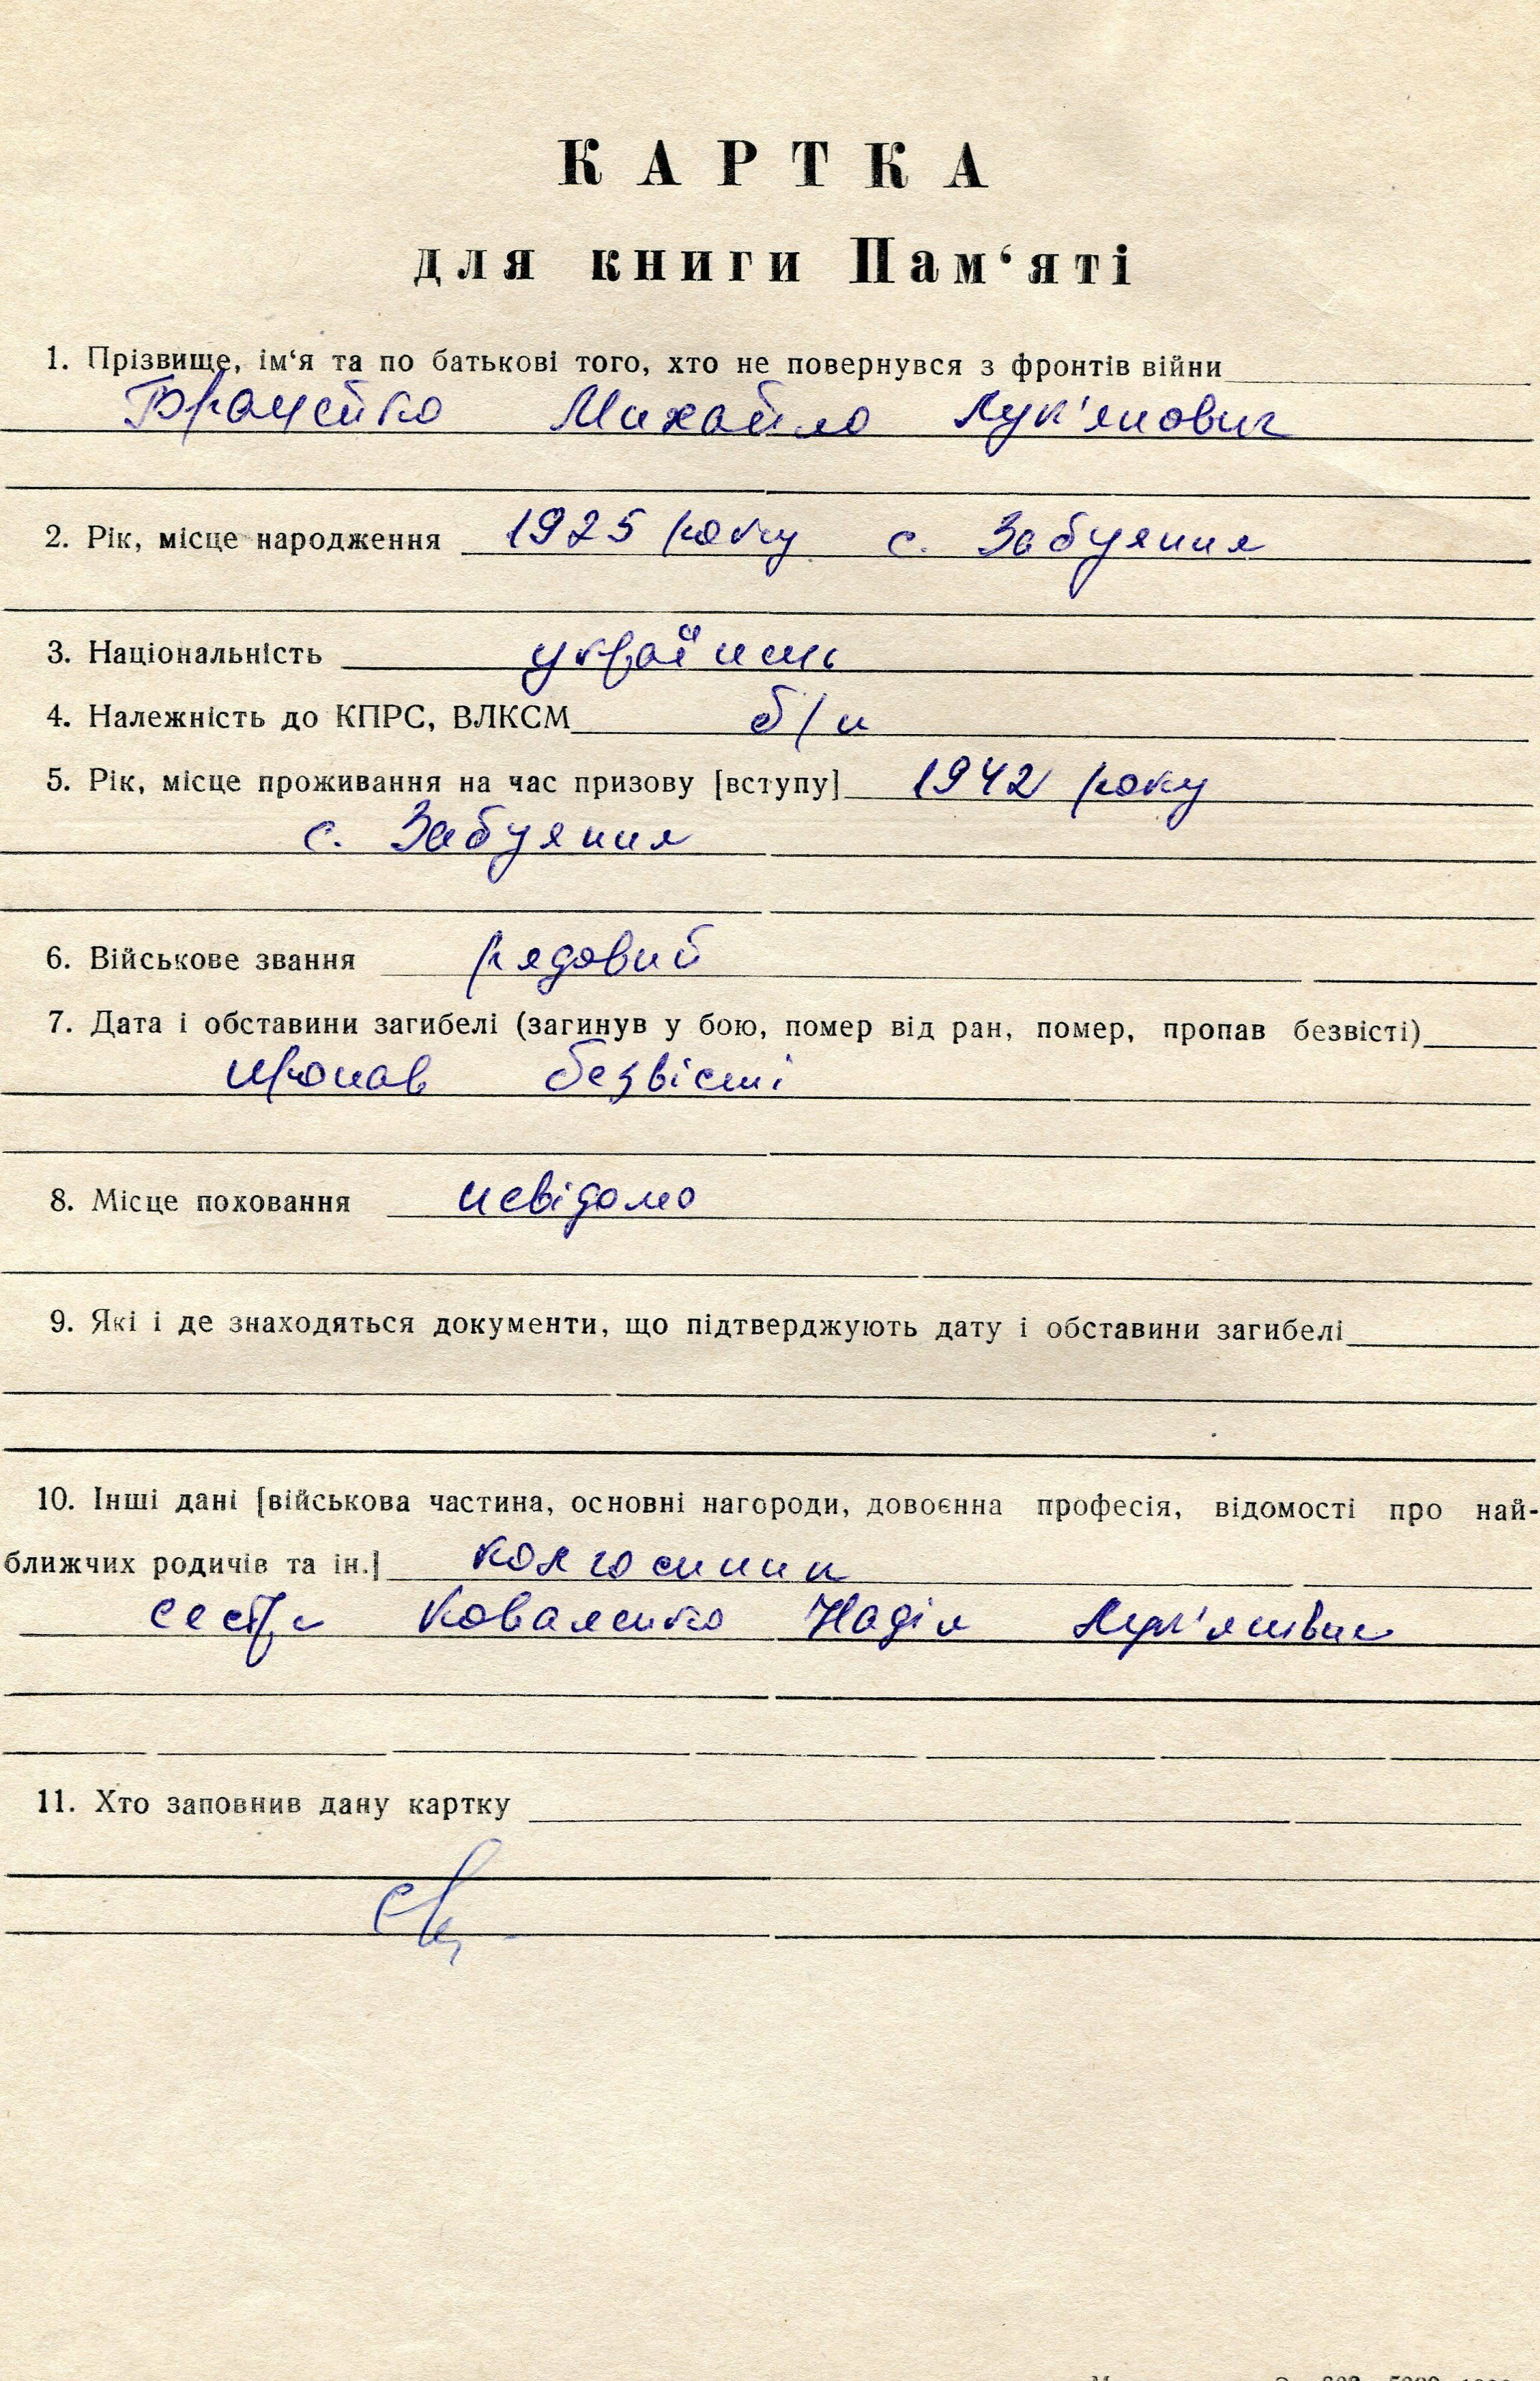 КАРТКА
для книги Пам‘яті
1. Прізвище, ім‘я та по батькові того, хто не повернувся з фронтів війни
Михайло Лук'янович
2. Рік, місце народження 1925 року с. Забуяння
3. Національність українець
4. Належність до КПРС, ВЛКСМ б/п
5. Рік, місце проживання на час призову [вступу] 1942 року
с. Забуяння
6. Військове звання рядовий
7. Дата і обставини загибелі (загинув у бою, помер від ран, помер, пропав безвісті)
пропав безвісті
8. Місце поховання невідомо
9. Які і де знаходяться документи, що підтверджують дату і обставини загибелі
10. Інші дані [військова частина, основні нагороди, довоєнна професія, відомості про най-
ближчих родичів та ін.] колгоспник
сестра Коваленко Надія Лук'янівна
11. Хто заповнив дану картку